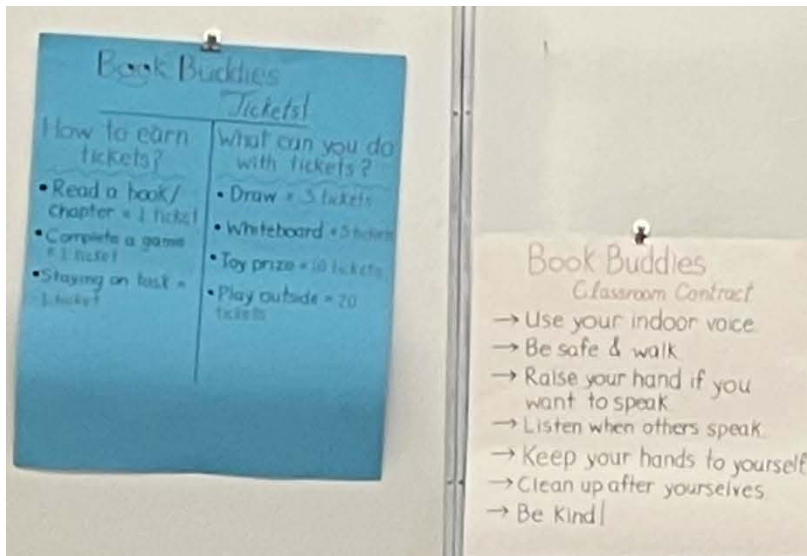 Book Buddies
Tickets!
How to earn
tickets?
• Read a book/
Chapter = 1 ticket
• Complete a game
= 1 ticket
• Staying on task =
1 ticket
What can you do
with tickets?
• Draw = 5 tickets
• Whiteboard = 5 tickets
• Toy prize = 10 tickets
• Play outside = 20
tickets
Book Buddies
Classroom Contract
→ Use your indoor voice
→ Be safe & walk
→ Raise your hand if you
want to speak
→ Listen when others speak
→ Keep your hands to yourself
→ Clean up after yourselves
→ Be Kind!